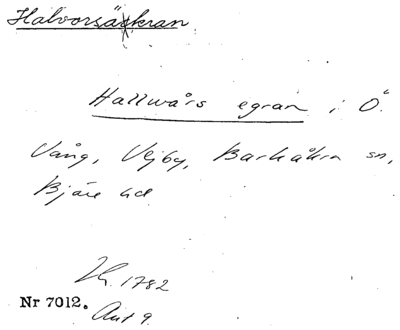 Halvorsäckran
Hallwårs egran i Ö.
Vång, Vejby, Barkåkra sn,
Bjäre hd
1782
Nr 7012.
Akt 9.